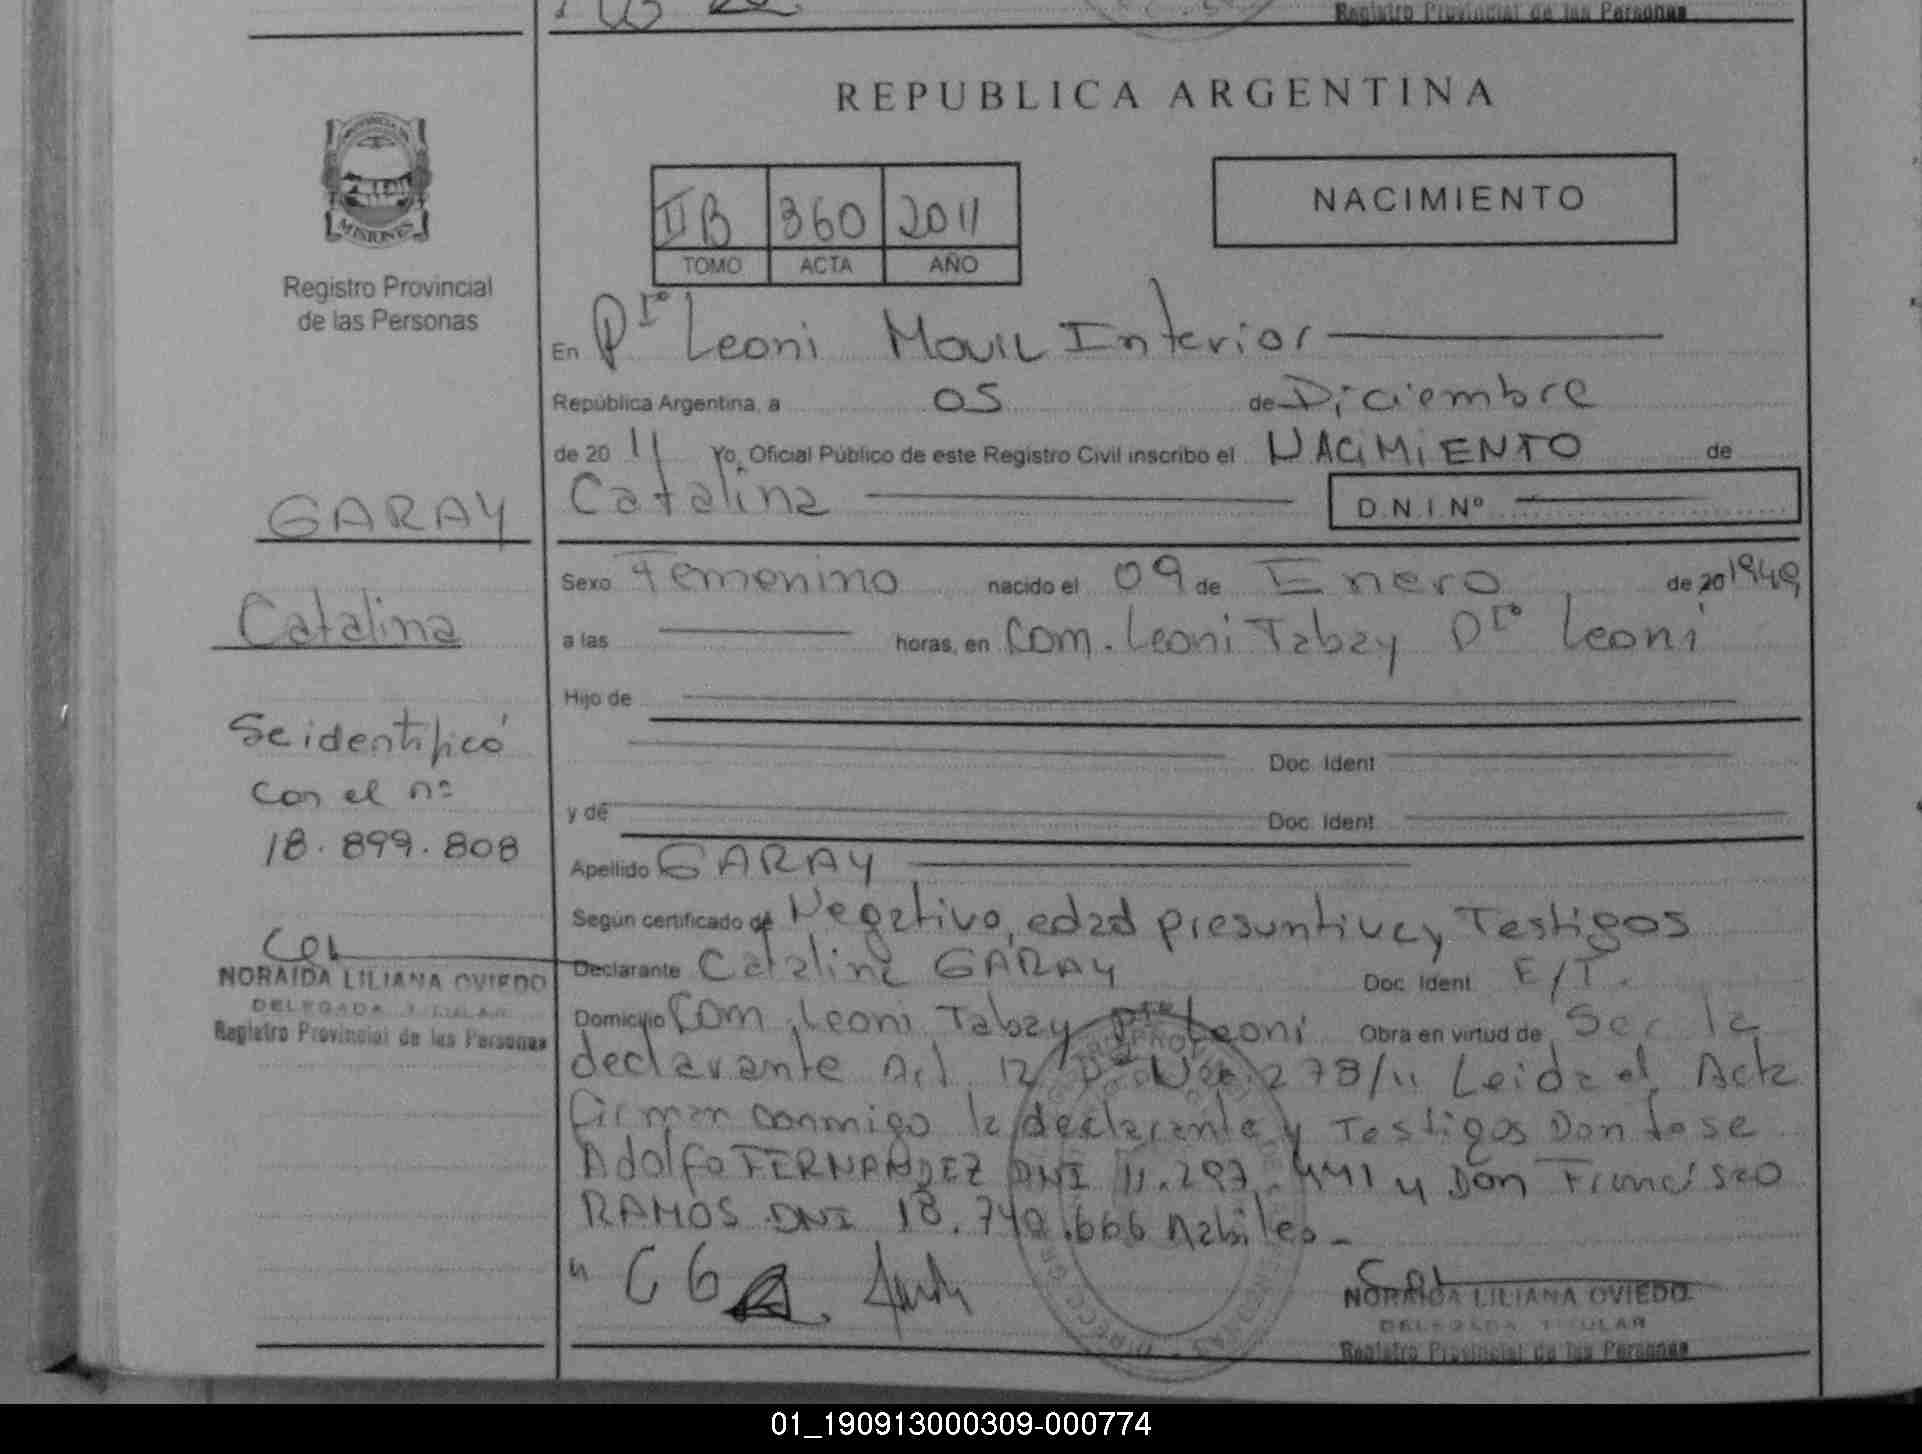 Registro Provincial de las Personas
REPUBLICA ARGENTINA
PROVINCIA DE
MISIONES
Registro Provincial
de las Personas
IIB 360 2011
TOMO ACTA AÑO
NACIMIENTO
En Pto Leoni Movil Interior
República Argentina, a 05 de Diciembre
de 20 11 Yo, Oficial Público de este Registro Civil inscribo el NACIMIENTO de
Catalina
D.N.I. Nº
GARAY
Catalina
Se identificó
con el nº
18.899.808
NORAIDA LILIANA OVIEDO
DELEGADA TITULAR
Registro Provincial de las Personas
Sexo Femenino nacido el 09 de Enero de 20 1949
a las horas, en Com. Leoni Tabay Pto Leoni
Hijo de
Doc. Ident
y de Doc. Ident.
Apellido GARAY
Según certificado de Negativo, edad presuntiva y Testigos
Declarante Catalina GARAY Doc. Ident. E/T.
Domicilio Com. Leoni Tabay Pto Leoni Obra en virtud de Ser la
declarante Art. 12 278/11 Leida el Acta
firman conmigo la declarante y Testigos Don Jose
Adolfo FERNANDEZ DNI 11.297.441 y Don Francisco
RAMOS DNI 18.740.666 habiles_
" C G
NORAIDA LILIANA OVIEDO
DELEGADA TITULAR
Registro Provincial de las Personas
01_190913000309-000774